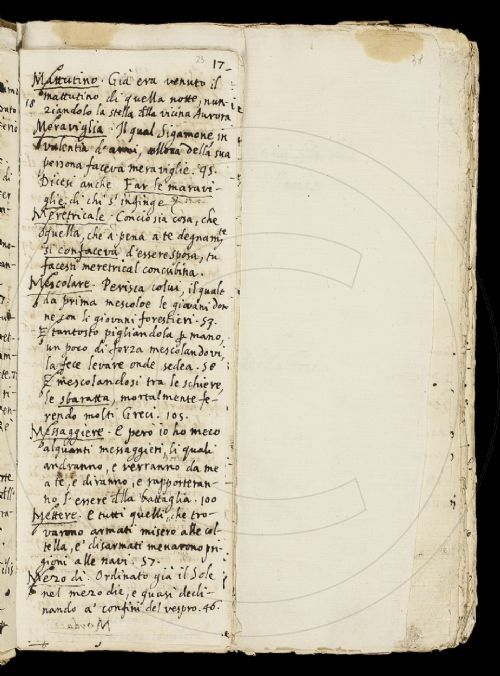 23 17
38
Mattutino. Già era venuto il
mattutino di quella notte, nun
18 ziandolo la stella della vicina Aurora
Meraviglia. Il qual Sigamone in
valentia d'armi, della sua
persona faceva meraviglie. 95.
Dicesi anche Far le maravi-
glie, di chi s'infinge
Meretricale. Conciosia cosa, che
quella, che a pena a te degnamte
si confaceva d'essere sposa, tu
facesti meretrical concubina.
Mescolare. Perisca colui, il quale
da prima mescoloe le giovani don
ne con li giovani forestieri. 53.
E tantosto pigliandola p mano,
un poco di forza mescolandovi,
la fece levare onde sedea. 58
E mescolandosi tra le schiere,
le sbaratta, mortalmente fe-
rendo molti Greci. 105.
Messaggiere. E però io ho meco
alquanti messaggieri, li quali
andranno, e verranno da me
a te, e diranno, e rapporteran-
no, l'essere della battaglia. 100
Mettere. E tutti quelli, che tro-
varono armati misero alle col-
tella, e disarmati menarono pri
gioni alle navi. 57.
Mezo dì. Ordinato già il Sole
nel mezo die, e quasi decli-
nando a' confini del vespro. 46.